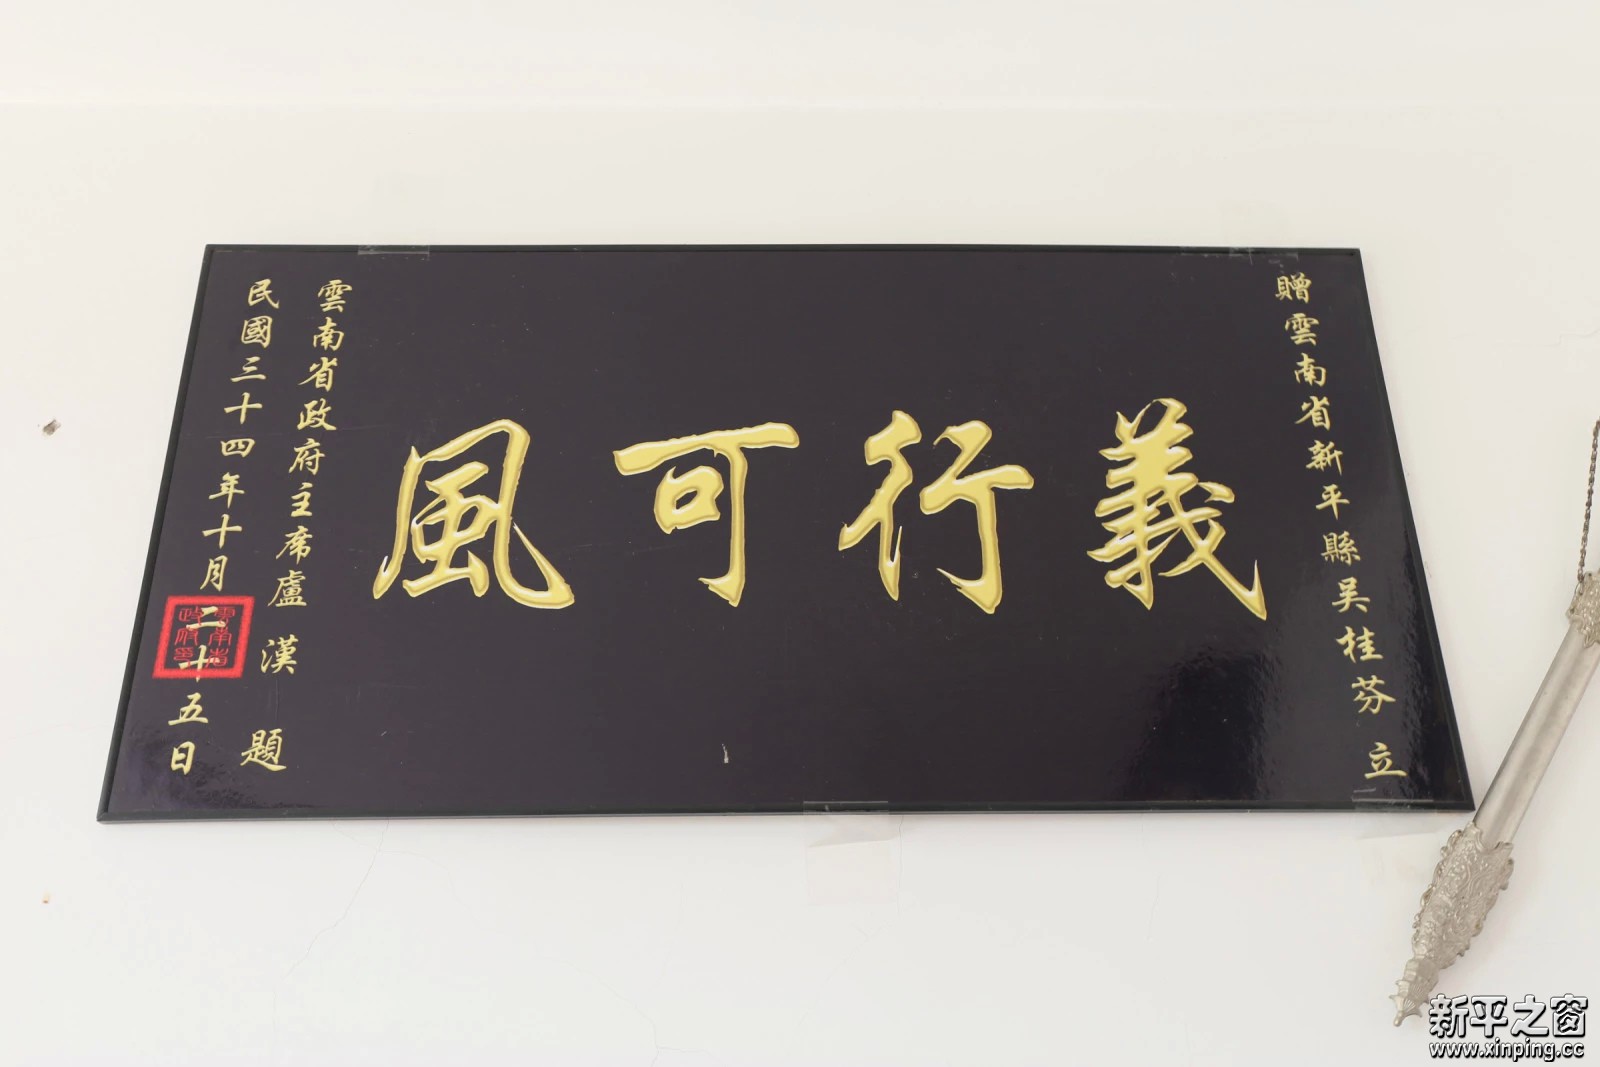 贈雲南省新平縣吴桂芬 立
義行可風
雲南省政府主席盧 漢 題
民國三十四年十月二十五日
雲南省
政府印
新平之窗
www.xinping.cc